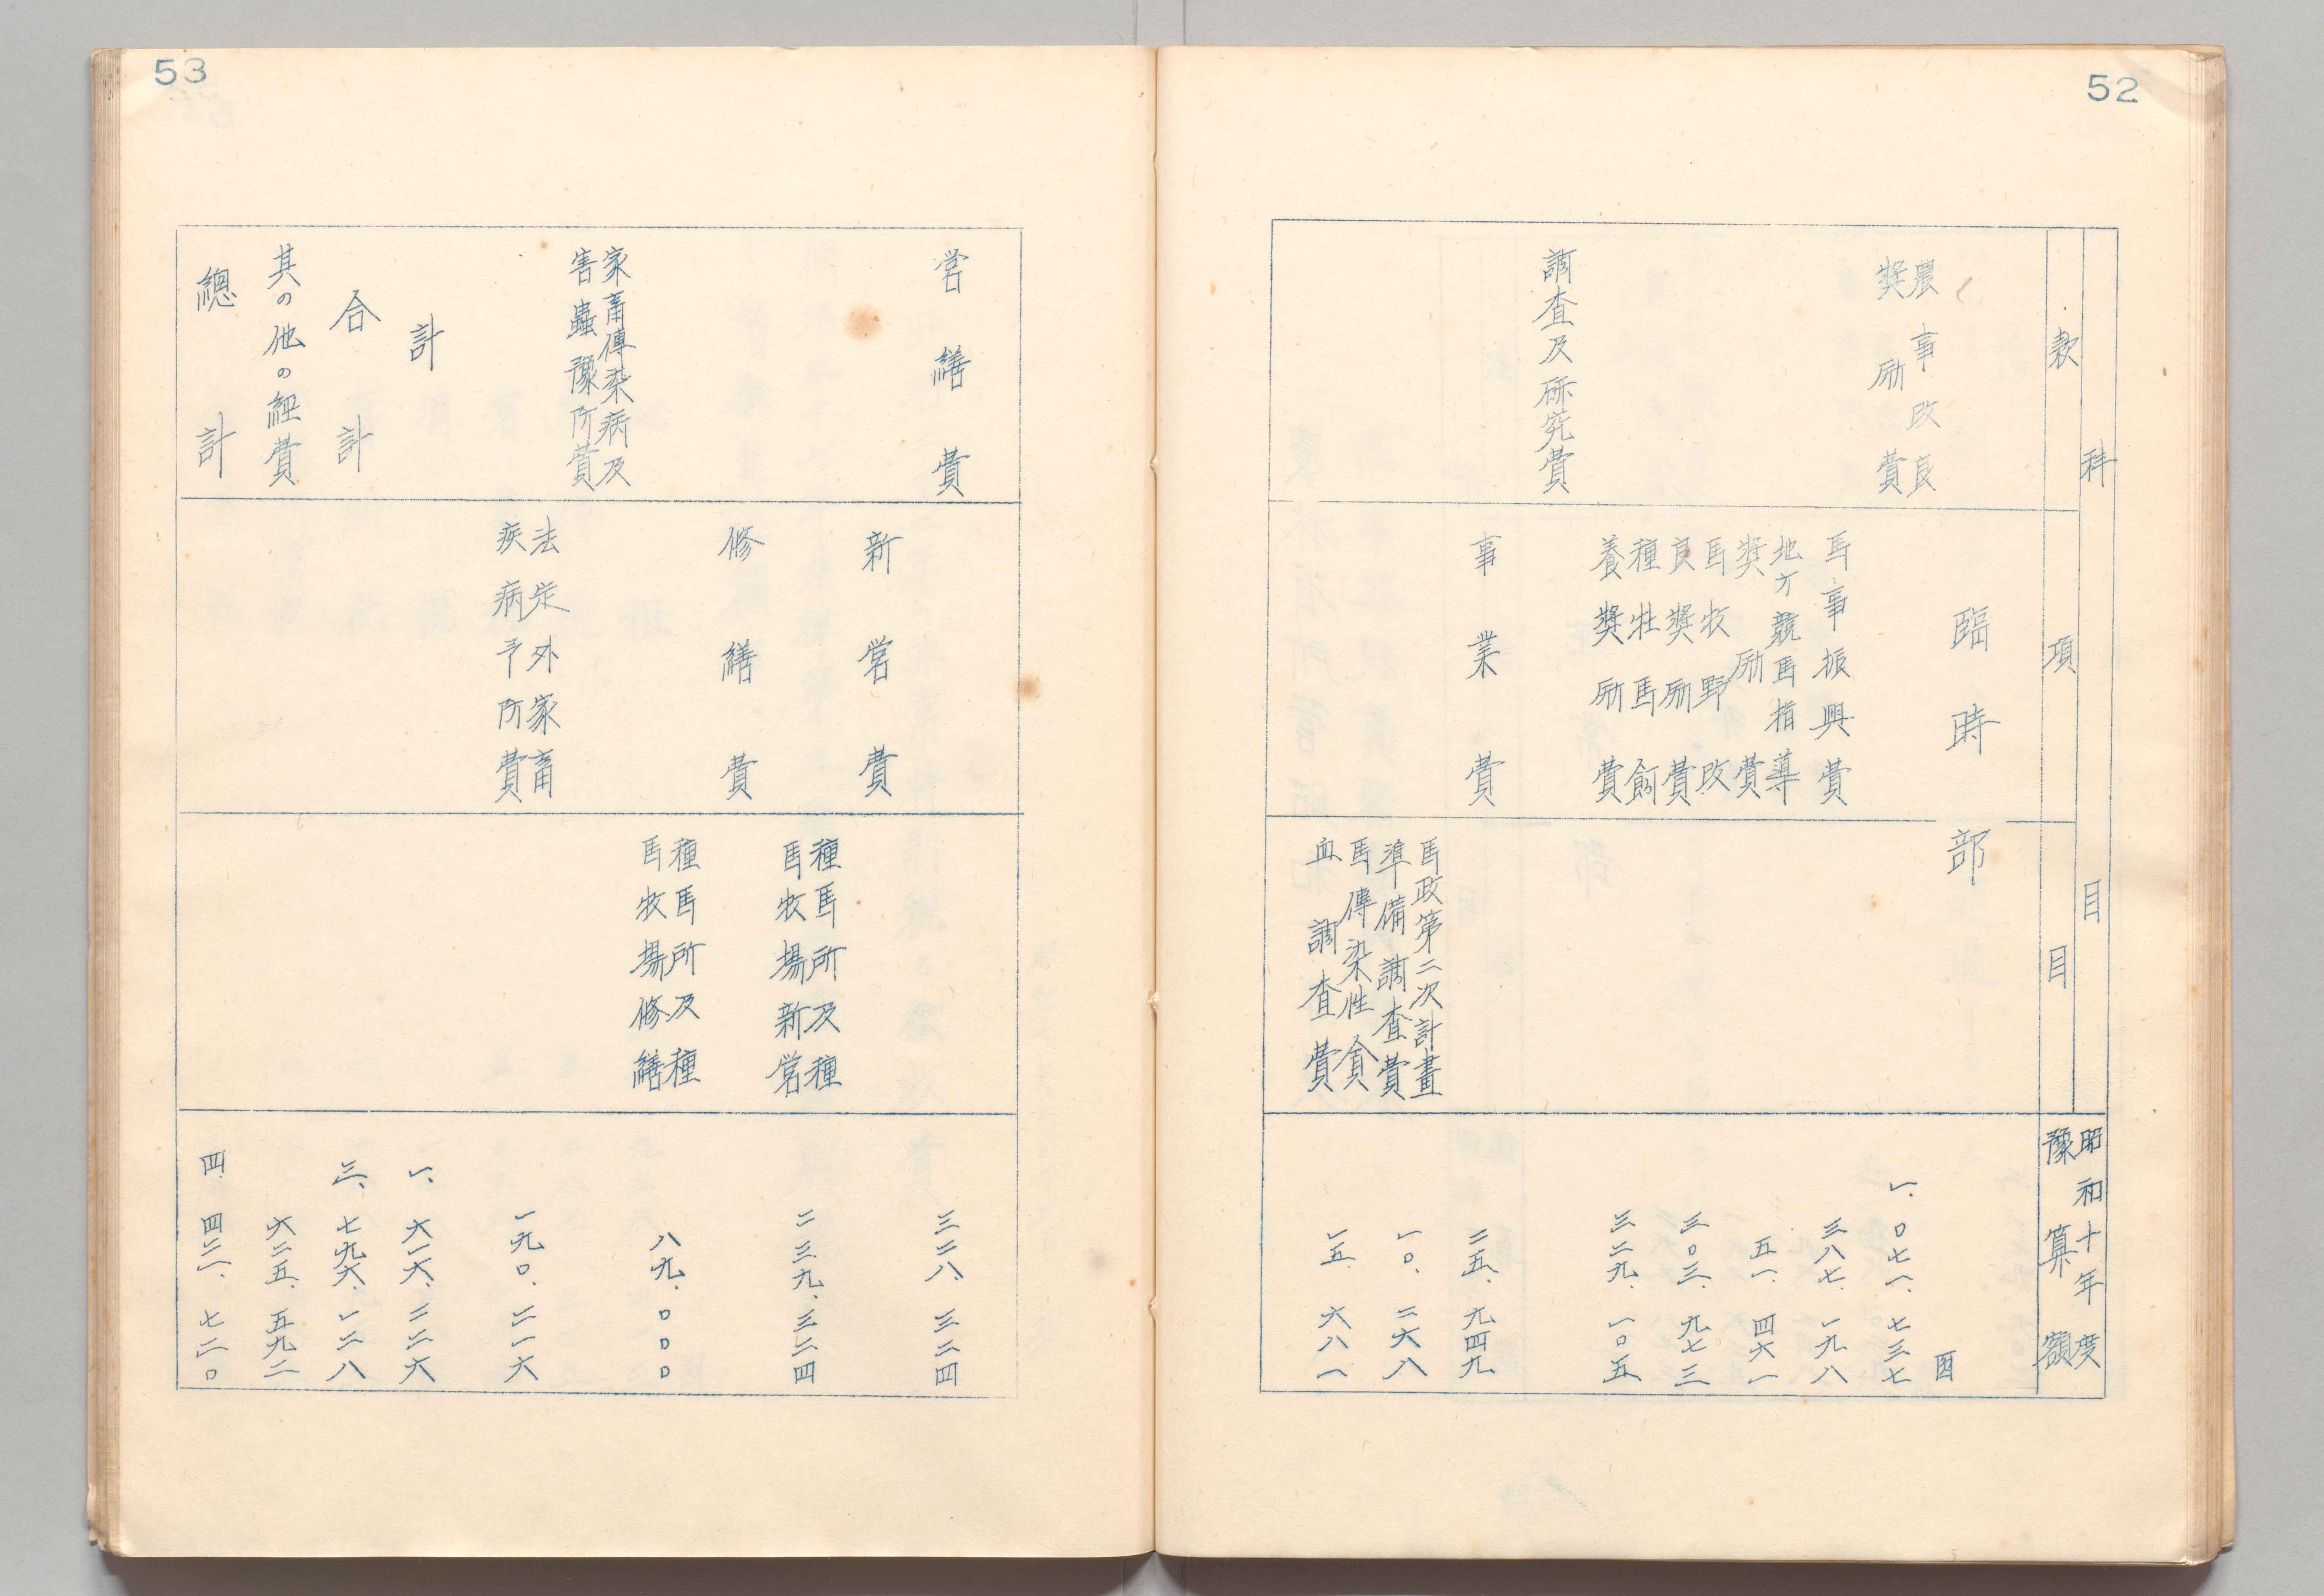 52
科目
款
項
目
昭和十年度
豫算額
臨時部
円
農事改良
奨励費
一、〇七一、七三七
馬事振興費
三八七、一九八
地方競馬指導
奨励費
五一、四六一
馬牧野改
良奨励費
三〇三、九七三
種牡馬飼
養奨励費
三二九、一〇五
調査及研究費
事業費
二五、九四九
馬政第二次計畫
準備調査費
一〇、二六八
馬傳染性貧
血調査費
一五、六八一
53
営繕費
三二八、三二四
新営費
種馬所及種
馬牧場新営
二三九、三二四
修繕費
種馬所及種
馬牧場修繕
八九、〇〇〇
家畜傳染病及
害蟲豫防費
法定外家畜
疾病予防費
一九〇、二一六
計
一、六一六、二二六
合計
三、七九六、一二八
其の他の経費
六二五、五九二
總計
四、四二一、七二〇